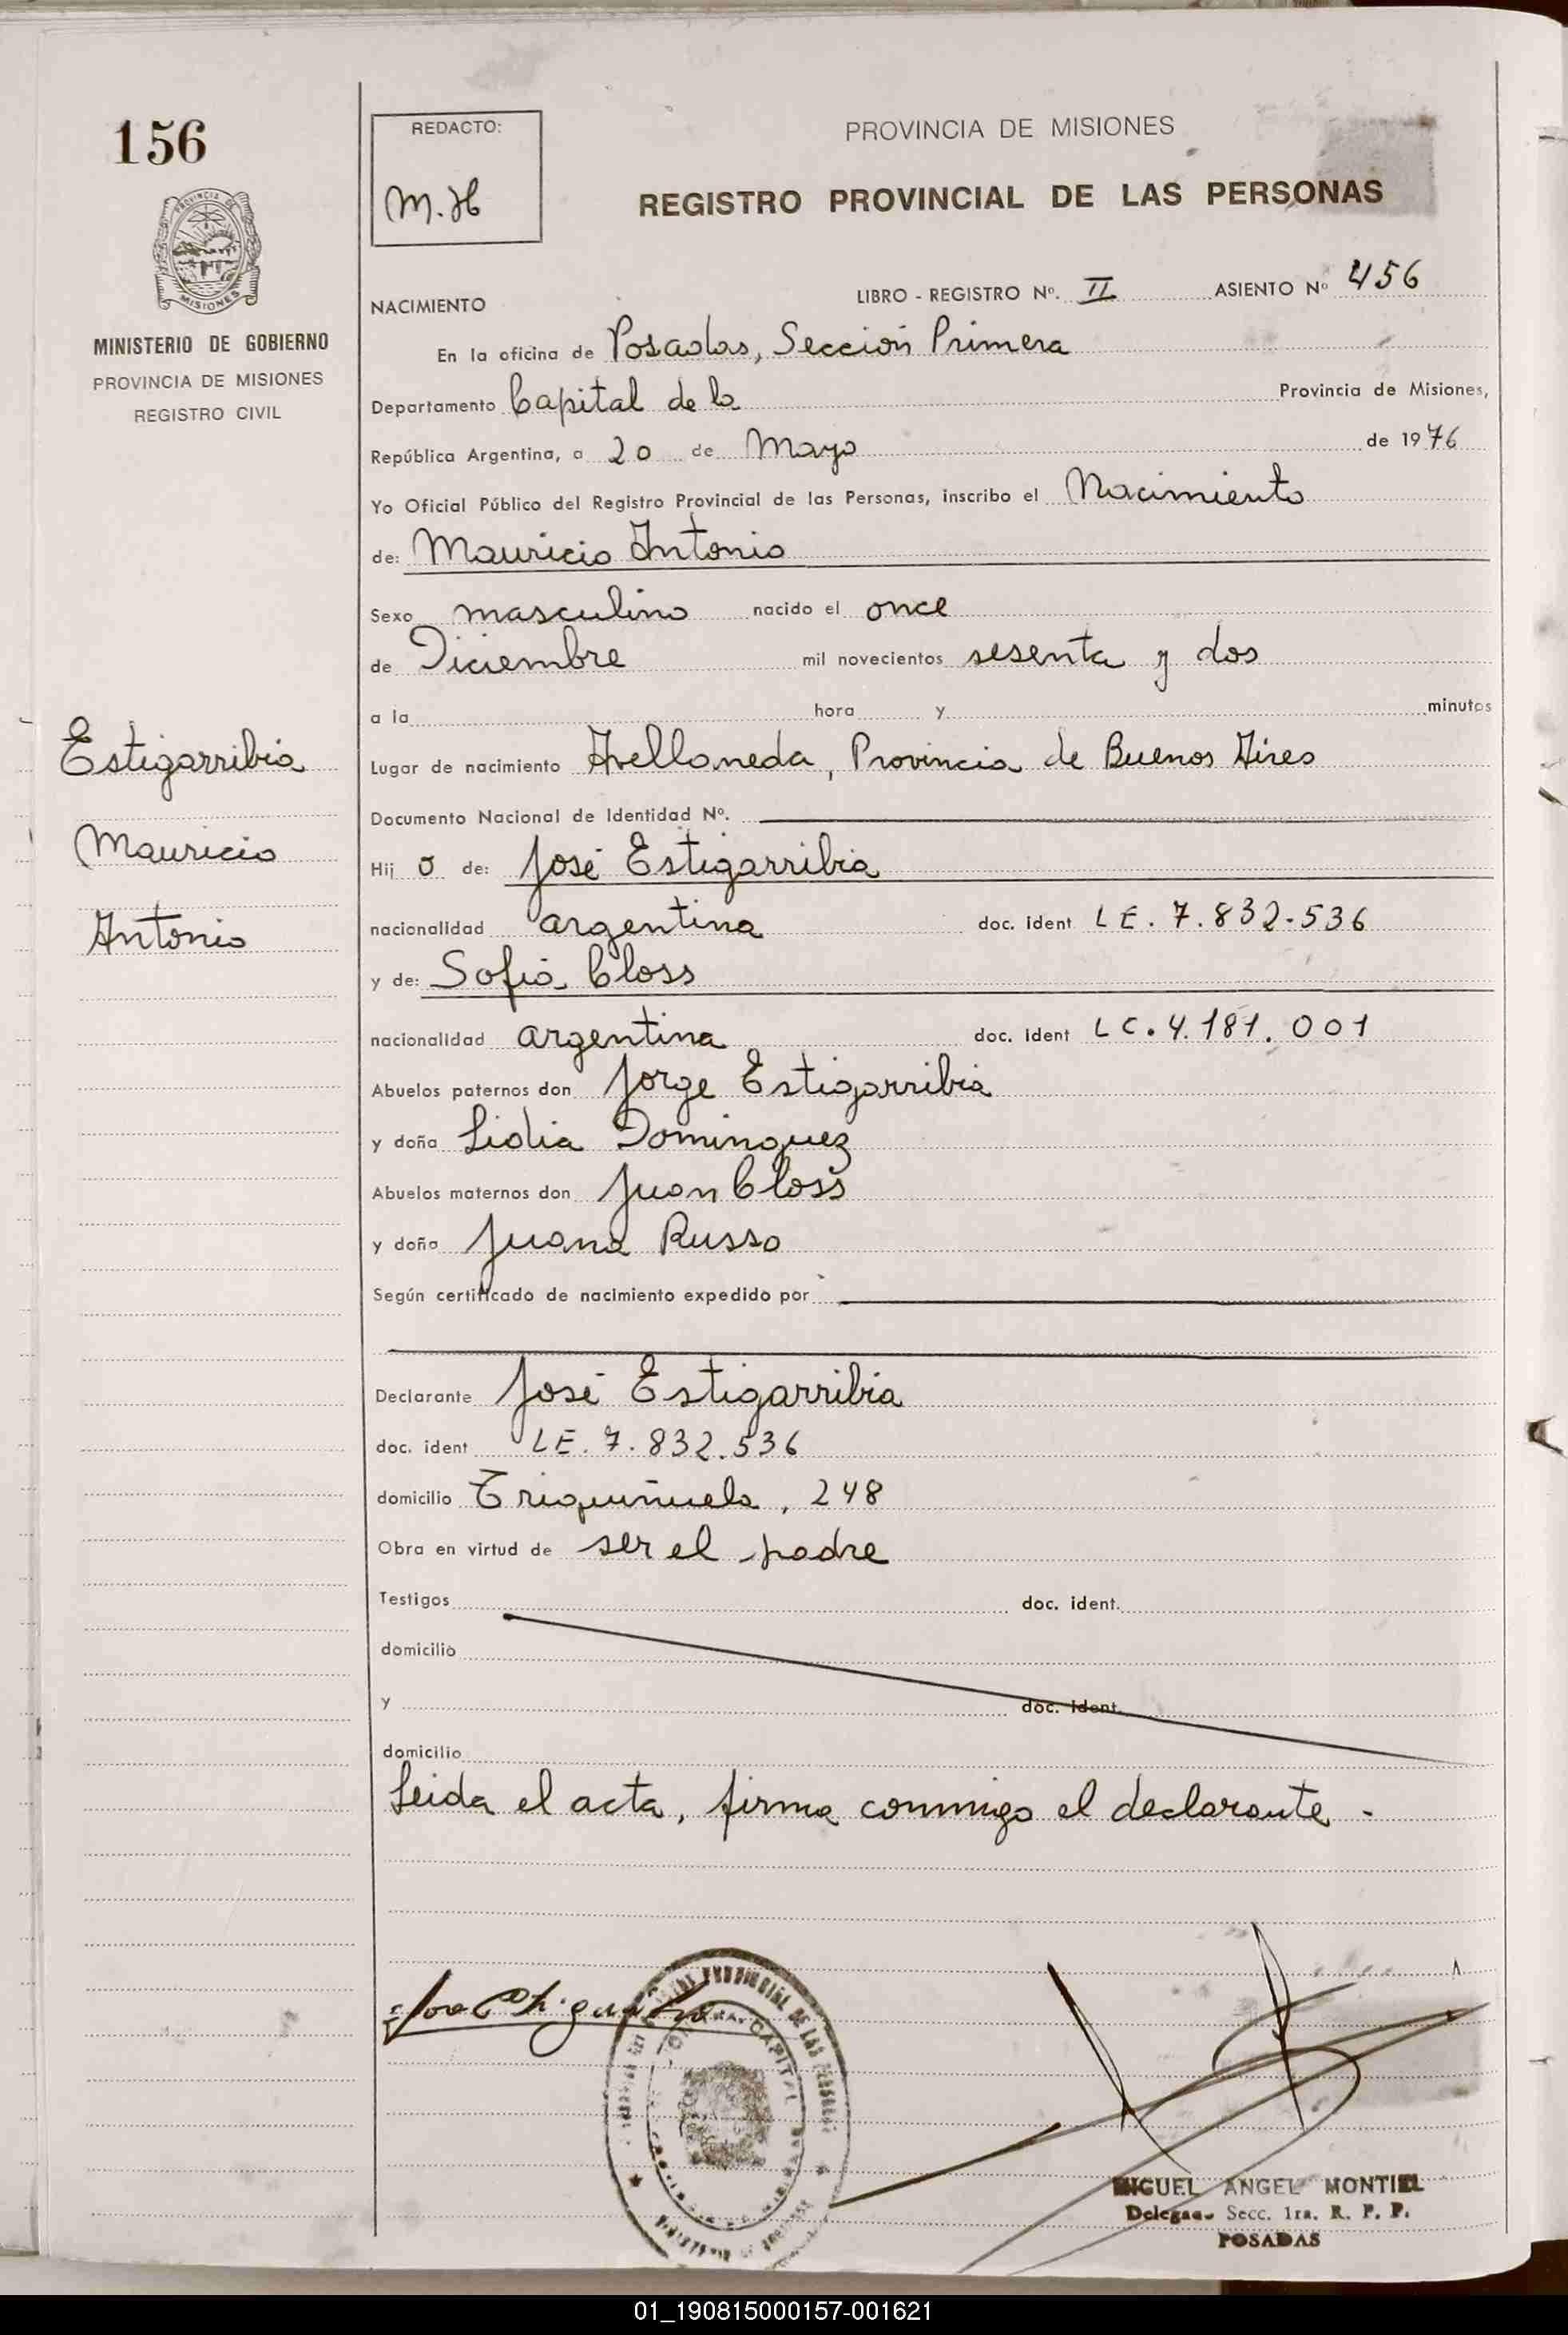 156
PROVINCIA DE
MISIONES
MINISTERIO DE GOBIERNO
PROVINCIA DE MISIONES
REGISTRO CIVIL
Estigarribia
Mauricio
Antonio
REDACTO:
M.H
PROVINCIA DE MISIONES
REGISTRO PROVINCIAL DE LAS PERSONAS
NACIMIENTO LIBRO - REGISTRO Nº. II ASIENTO Nº 456
En la oficina de Posadas, Sección Primera
Departamento Capital de la Provincia de Misiones,
República Argentina, a 20 de Mayo de 1976
Yo Oficial Público del Registro Provincial de las Personas, inscribo el Nacimiento
de: Mauricio Antonio
Sexo masculino nacido el once
de Diciembre mil novecientos sesenta y dos
a la hora y minutos
Lugar de nacimiento Avellaneda, Provincia de Buenos Aires
Documento Nacional de Identidad Nº.
Hij o de: José Estigarribia
nacionalidad argentina doc. ident LE. 7.832.536
y de: Sofia Closs
nacionalidad argentina doc. ident LC. 4.181.001
Abuelos paternos don Jorge Estigarribia
y doña Lidia Dominguez
Abuelos maternos don Juan Closs
y doña Juana Russo
Según certificado de nacimiento expedido por
Declarante José Estigarribia
doc. ident LE. 7.832.536
domicilio Triquiñuela, 248
Obra en virtud de ser el padre
Testigos doc. ident.
domicilio
y doc. ident.
domicilio
Leida el acta, firma conmigo el declarante.-
PROVINCIAL DE LAS
CAPITAL
MIGUEL ANGEL MONTIEL
Secc. 1ra. R. P. P.
POSADAS
01_190815000157-001621